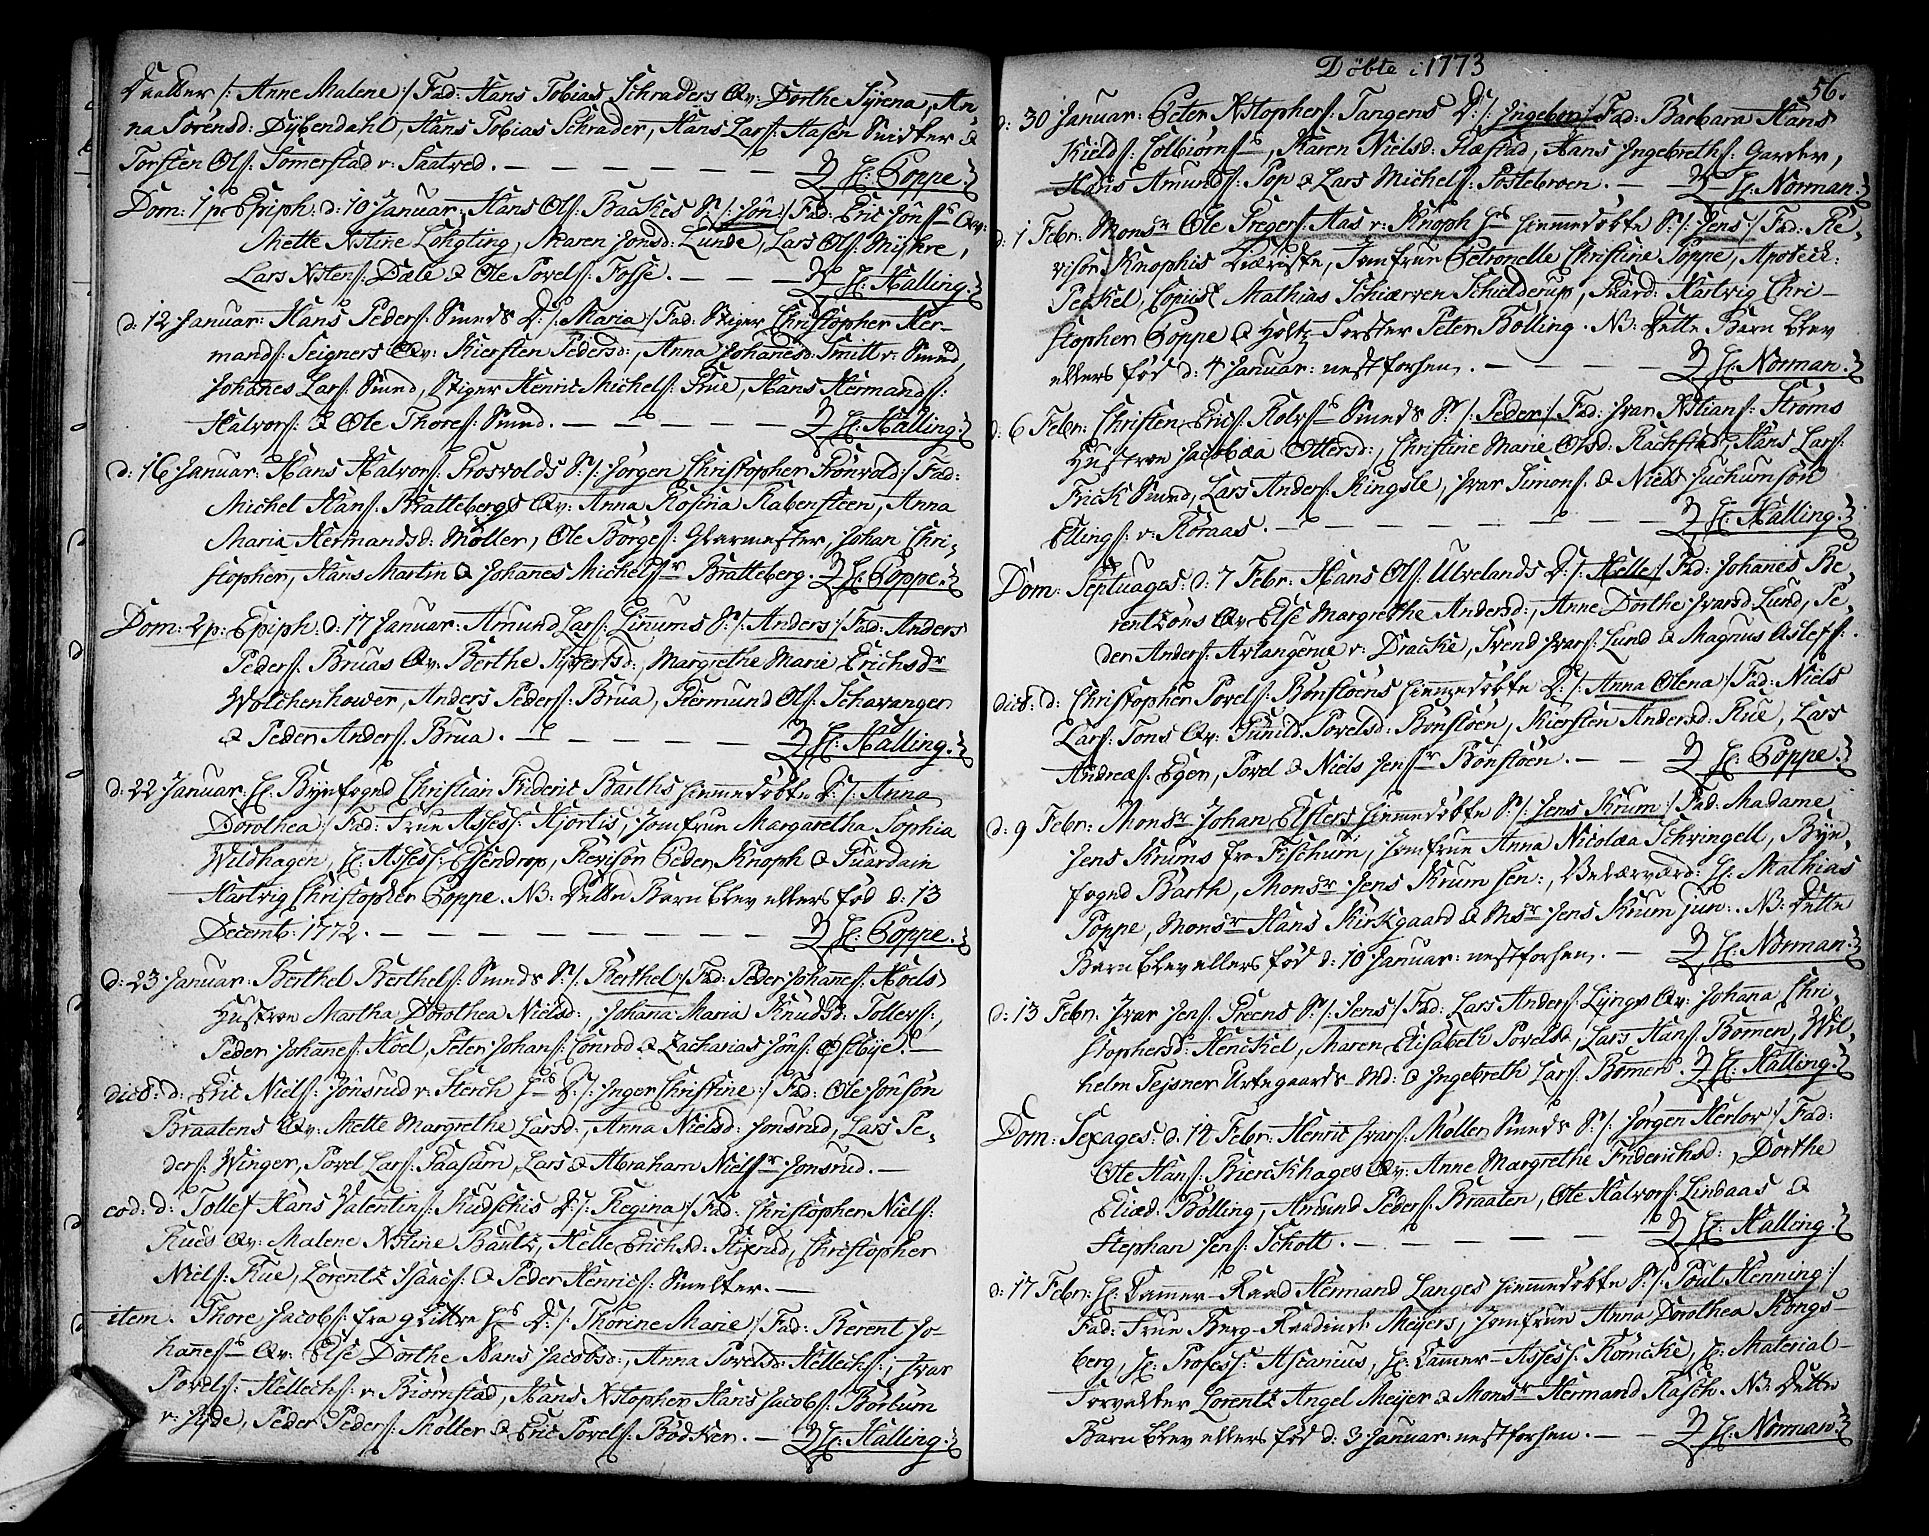 Daatter /: Anne Malene :/ Fad: Hans Tobias Schraders Qv: Dorthe Syrena, An-
na Sörensd: Dÿbendahl, Hans Tobias Schrader, Hans Lars: Hasen Smelter &
Torsten Ols: Somerstad v: Saatved. — Hr: Poppe.
Dom: 1 p: Epiph: d: 10 Januar: Hans Ols: Backes S: /: Jön :/ Fad: Eric Jöns: Qv:
Mette Xstine Lohgting, Maren Jonsd: Lunde, Lars Ols: Myhre,
Lars Xstens: Dale & Ole Povels: Fosse. — Hr: Halling.
d: 12 Januar: Hans Peders: Smeds D: /: Maria :/ Fad: Stiger Christopher Her-
mands: Seigners Qv: Kiersten Pedersd:, Anna Johanesd: Smitt v: Smed,
Johanes Lars: Smed, Stiger Henric Michels: Rue, Hans Hermands:
Halvors: & Ole Thores: Smed. — Hr: Halling.
d: 16 Januar: Hans Halvors: Rosvolds S: /: Jörgen Christopher Rönvold :/ Fad:
Michel Hans: Brattebergs Qv: Anna Rosina Rabensteen, Anna
Maria Hermandsd: Möller, Ole Börges: Glarmester, Johan Chri-
stopher, Hans Martin & Johanes Michelsr Bratteberg. Hr: Poppe.
Dom: 2 p: Epiph: d: 17 Januar: Amund Lars: Linums S: /: Anders :/ Fad: Anders
Peders: Bruas Qv: Berthe Siversd:, Margrethe Marie Erichsdr
Wolchenhower, Anders Peders: Brua, Reermund Ols: Schavanger
& Peder Anders: Brua. — Hr: Halling.
d: 22 Januar: Hr: Byefoged Christian Frideric Barths hiemmedøbte D: /: Anna
Dorothea :/ Fad: Frue Assess: Hjortis, Jomfrue Margaretha Sophia
Wildhagen, Hr: Assess: Essendrop, Revisor Peder Knoph & Guardain
Hartvig Christopher Poppe. NB: Dette Barn blev ellers fød d: 13
Decemb: 1772. — Hr: Poppe.
d: 23 Januar: Berthel Berthels: Smeds S: /: Berthel :/ Fad: Peder Johanes: Hoels
Hustroe Martha Dorothea Nielsd:, Johana Maria Knudsd: Tollers:,
Peder Johanes: Hoel, Peter Johans: Conrod & Zacharias Jöns: Østbye. —
dies: d: Eric Niels: Jönsrud v: Sterch Hs D: /: Inger Christine :/ Fad: Ole Jönsön
Braatens Qv: Mette Margrethe Larsd:, Anna Nielsd: Jonsrud, Lars Pe-
ders: Winger, Povel Lars: Paasum, Lars & Abraham Nielsr Jonsrud. —
eod: d: Tollef Hans Valentins: Kudschis D: /: Regina :/ Fad: Christopher Niels:
Rues Qv: Malene Xstine Bautz, Helle Erichsd: Stixrud, Christopher
Niels: Rue, Lorentz Isaacs: & Peder Henrics: Smelter. —
item. Thore Jacobs: fra glitre Hs D: /: Thorine Marie :/ Fad: Berent Jo-
hanes: Qv: Else Dorthe Hans Jacobsd:, Anna Povelsd: Hellechs:, Ivar
Povels: Hellechs: v: Biörnstad, Hans Xstopher Hans Jacobs: Börtum
v: Jyde, Peder Peders: Möller & Eric Povels: Bödker. — Hr: Halling.
Döbte i 1773
56.
d: 30 Januar: Peter Xstophers: Tangens D: /: Ingebor :/ Fad: Barbara Hans
Kields: Colbiörns:, Karen Nielsd: Flæstad, Hans Ingebreths: Garder,
Hans Amunds: Pop & Lars Michels: Postebroen. — Hr: Norman.
d: 1 Febr: Monsr Ole Gregers: Aas v: Knoph Hs hiemmedøbte S: /: Jens :/ Fad: Re-
visor Knophis Kiæriste, Jomfrue Petronelle Christine Poppe, Apoteck:
Peckel, Copiist Mathias Schiærven Schielderup, Guard: Hartvig Chri-
stopher Poppe & Holtz-Forster Peter Bölling. NB: Dette Barn blev
ellers fød d: 4 Januar: nestforhen. — Hr: Norman.
d: 6 Febr: Christen Erics: Holvs: Smeds S: /: Peder :/ Fad: Ivar Xstians: Ströms
Hustroe Jacobæa Ottersd:, Christine Marie Olsd: Rachstad, Hans Lars:
Frick Smed, Lars Anders: Kingsle, Ivar Simons: & Niels Juchumsön
Ellings: v: Moraas. — Hr: Halling.
Dom: Septuages: d: 7 Febr: Hans Ols: Ulvelands D: /: Helle :/ Fad: Johanes Be-
rentzöns Qv: Else Margrethe Andersd:, Anne Dorthe Ivarsd: Lund, Pe-
der Anders: Avlangerue v: Dracke, Svend Ivars: Lund & Magnus Aslefs:
dies: d: Christopher Povels: Bönsloens hiemmedøbte D: /: Anna Olena :/ Fad: Niels
Lars: Tons Qv: Gunild Povelsd: Bönsloen, Kiersten Andersd: Rue, Lars
Andreas: Eger, Povel & Niels Jensr Bönsloen. — Hr: Poppe.
d: 9 Febr: Monsr Johan Elsters hiemmedøbte S: /: Jens Krum :/ Fad: Madame
Jens Krums fra Fischum, Jomfrue Anna Nicolæa Schringell, Bye-
foged Barth, Monsr Jens Krum sen:, Velærværd: Hr: Mathias
Poppe, Monsr Hans Kirkgaard & Msr Jens Krum jun: NB: Dette
Barn blev ellers fød d: 10 Januar: nestforhen. — Hr: Norman.
d: 13 Febr: Ivar Jens: Greens S: /: Jens :/ Fad: Lars Anders: Lyngs Qv: Johana Chri-
stophersd: Henckel, Maren Elisabeth Povelsd:, Lars Hans: Bomen, Wil-
helm Tejsner Urtegaards-Md: & Ingebreth Lars: Bomen. Hr: Halling.
Dom: Sexages: d: 14 Febr: Henric Ivars: Möller Smeds S: /: Jörgen Herlov :/ Fad:
Ole Hans: Bierckhages Qv: Anne Margrethe Friderichsd:, Dorthe
Eliæd: Bölling, Amund Peders: Braaten, Ole Halvors: Lindaas &
Stephan Jens: Schott. — Hr: Halling.
d: 17 Febr: Hr: Cammer-Raad Hermand Langes hiemmedøbte S: /: Poul Henning :/
Fad: Frue Berg-Raadinde Meÿers, Jomfrue Anna Dorothea Kongs-
berg, Hr: Profess: Ascanius, Hr: Cammer-Assess: Römcke, Hr: Material-
Forvalter Lorentz Angel Meÿer & Monsr Hermand Rasch. NB: Dette
Barn blev ellers fød d: 3 Januar: nestforhen. — Hr: Norman.